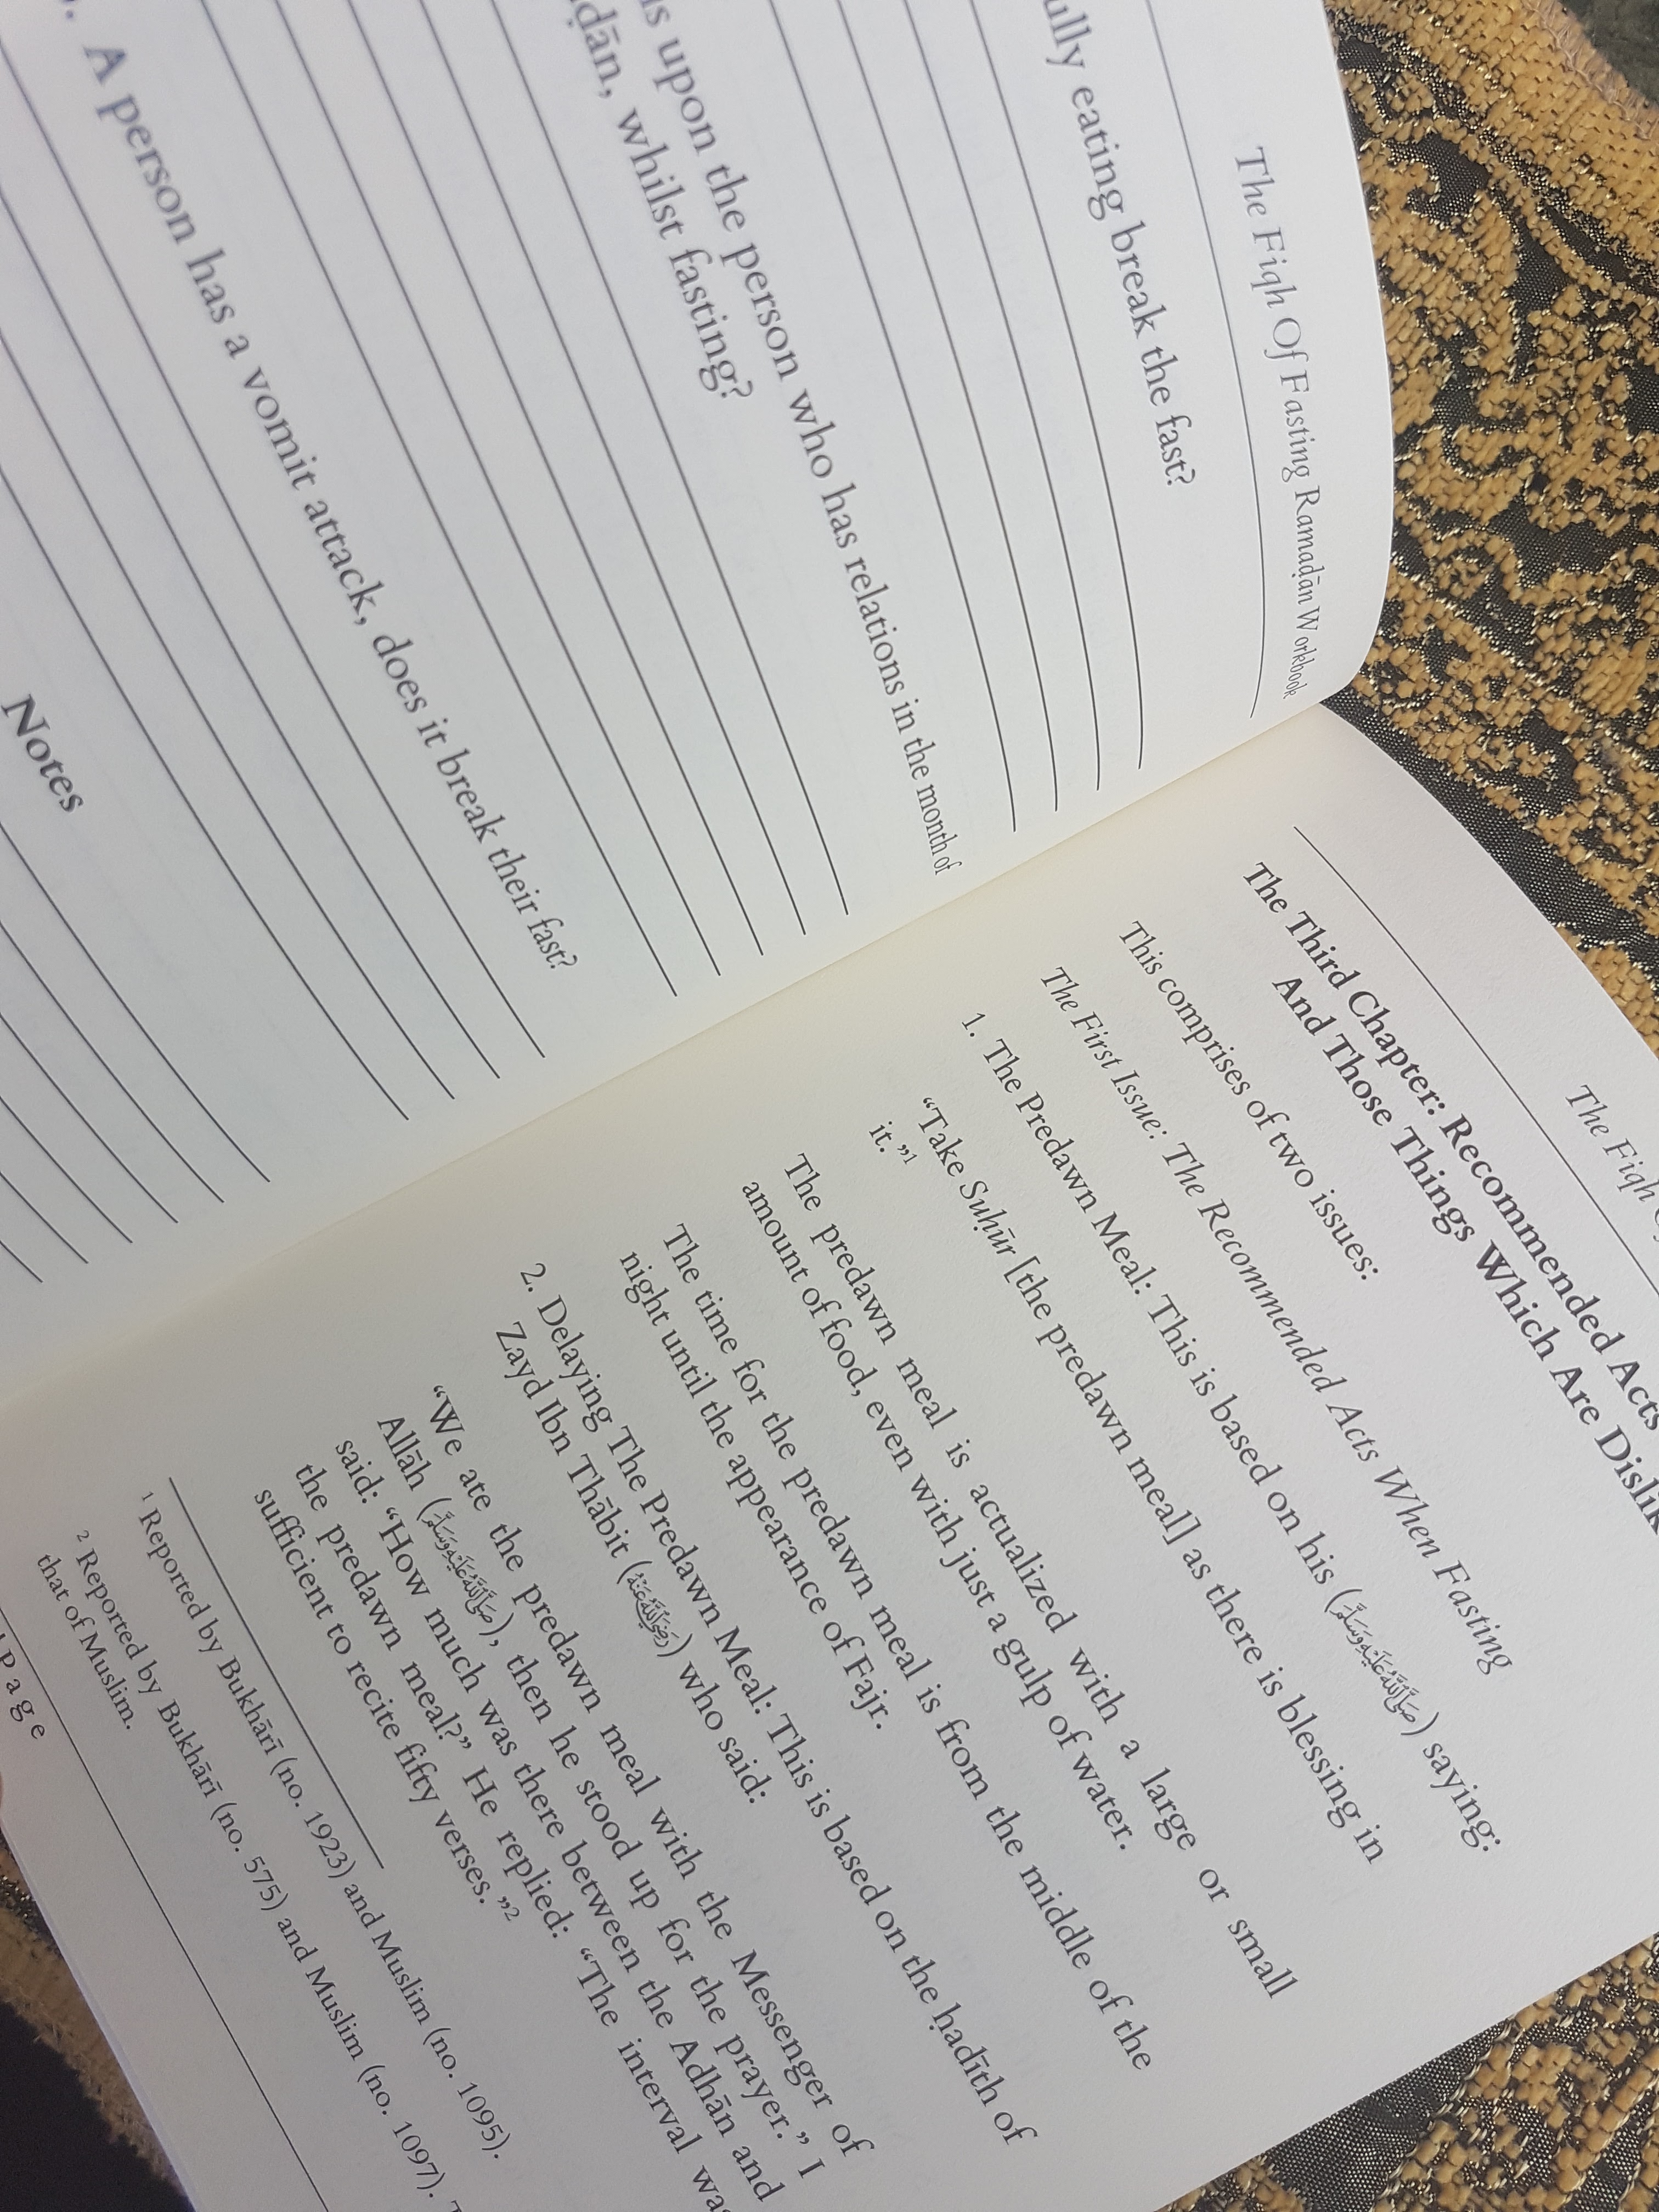 The Fiqh Of Fasting Ramaḍān Workbook
eating break the fast?
upon the person who has relations in the month of
whilst fasting?
A person has a vomit attack, does it break their fast?
Notes
The Fiqh
The Third Chapter: Recommended Acts
And Those Things Which Are
This comprises of two issues:
The First Issue: The Recommended Acts When Fasting
1. The Predawn Meal: This is based on his (ﷺ) saying:
“Take Suḥūr [the predawn meal] as there is blessing in
it.”¹
The predawn meal is actualized with a large or small
amount of food, even with just a gulp of water.
The time for the predawn meal is from the middle of the
night until the appearance of Fajr.
2. Delaying The Predawn Meal: This is based on the ḥadīth of
Zayd Ibn Thābit (رَضِيَ اللَّهُ عَنْهُ) who said:
“We ate the predawn meal with the Messenger of
Allāh (ﷺ), then he stood up for the prayer.” I
said: “How much was there between the Adhān and
the predawn meal?” He replied: “The interval
sufficient to recite fifty verses.”²
¹ Reported by Bukhārī (no. 1923) and Muslim (no. 1095).
² Reported by Bukhārī (no. 575) and Muslim (no. 1097).
that of Muslim.
| P a g e